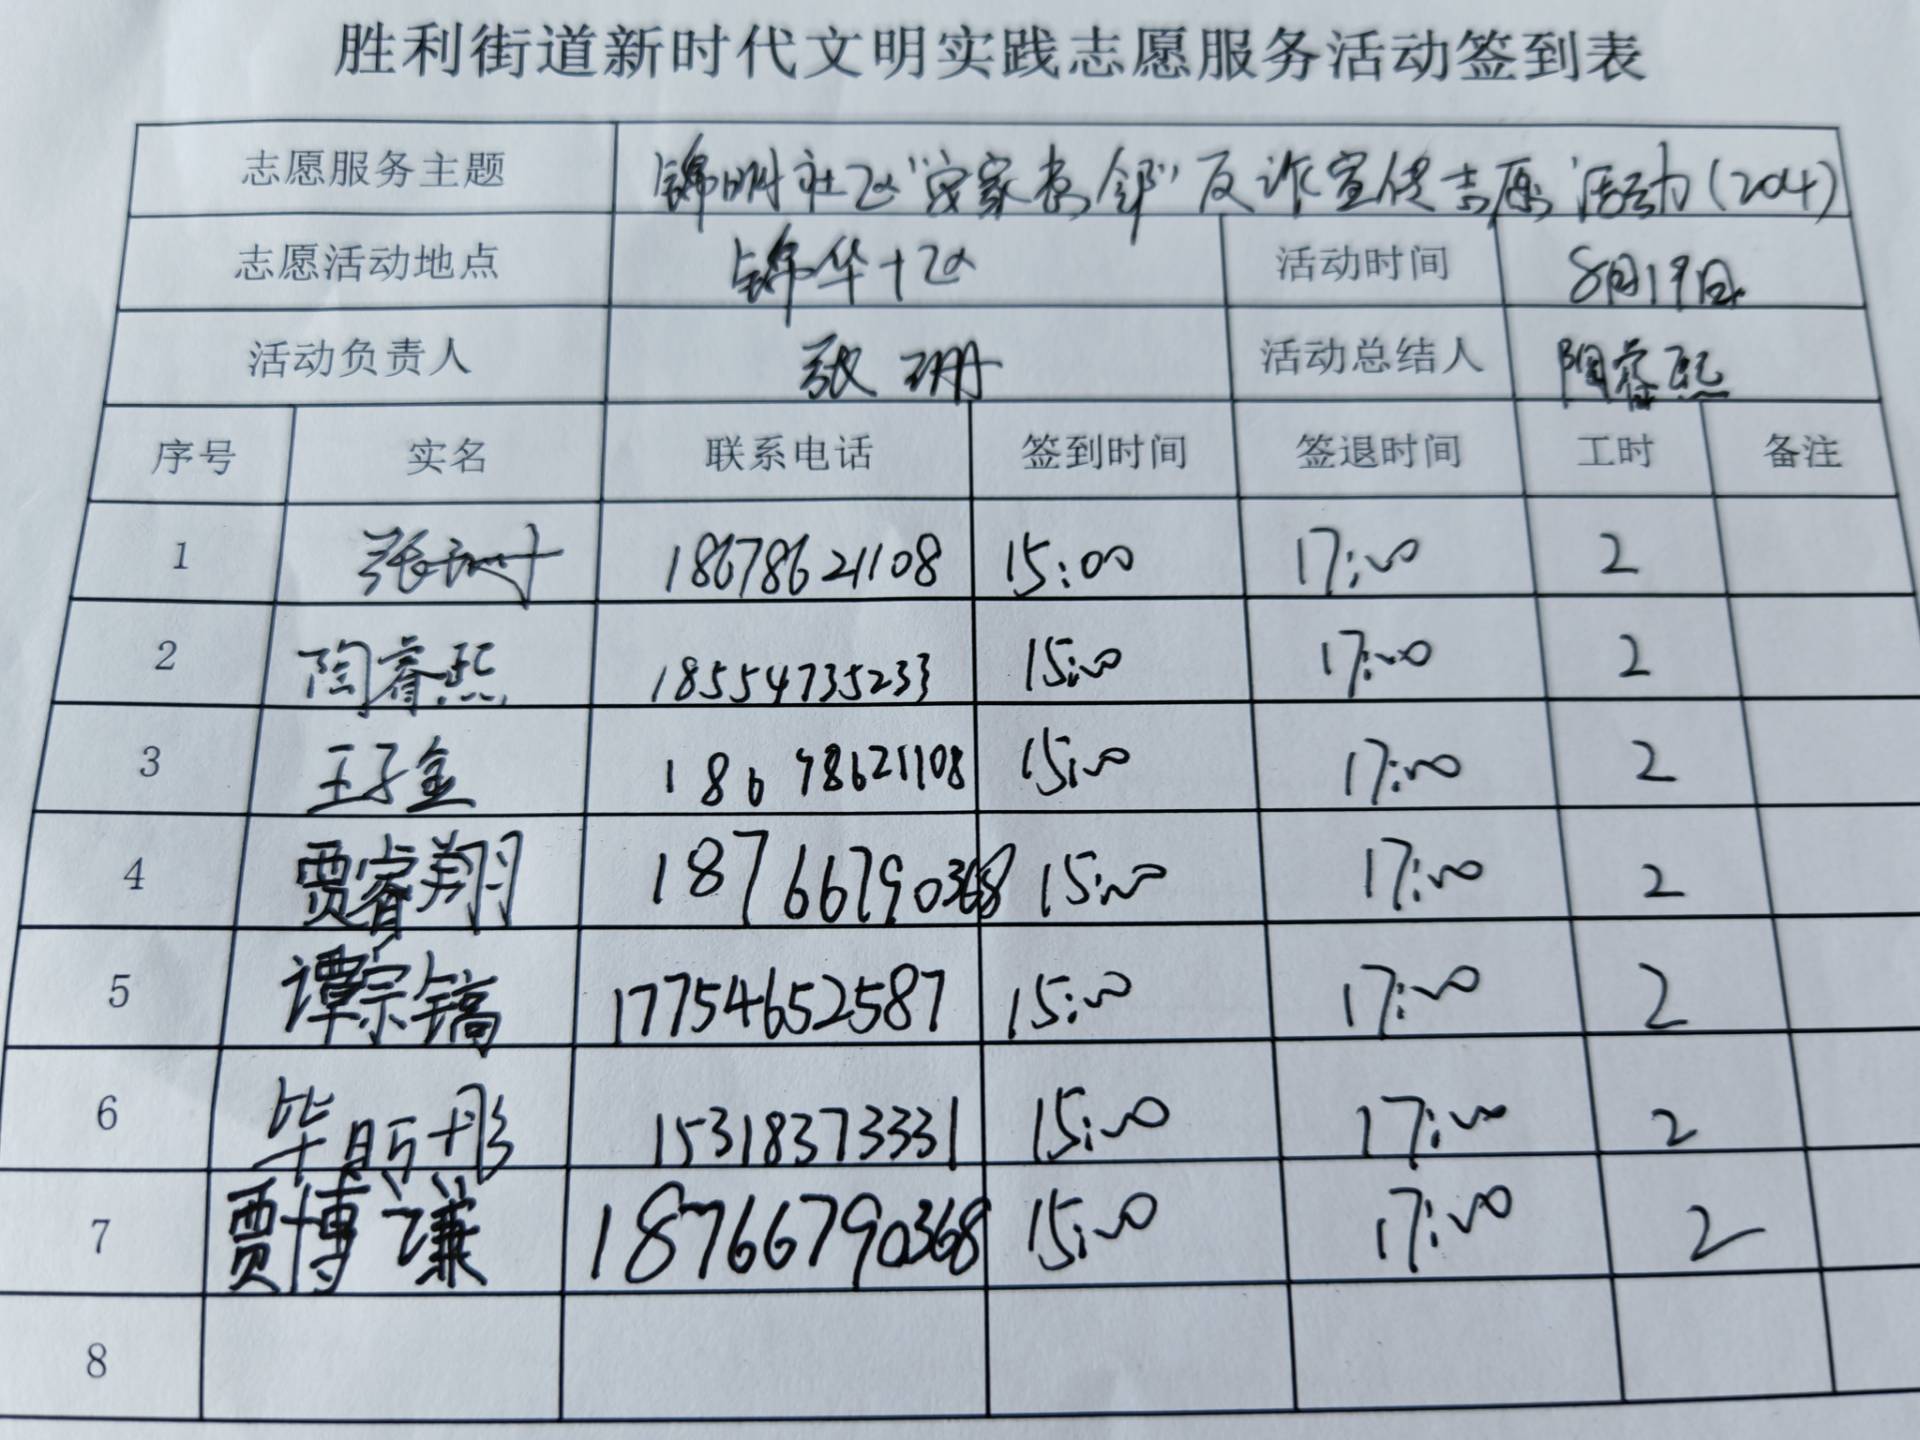 胜利街道新时代文明实践志愿服务活动签到表
志愿服务主题 锦明社区"安家善邻"反诈宣传志愿活动(204)
志愿活动地点 锦华十区 活动时间 8月19日
活动负责人 张珊 活动总结人 陶睿熙
序号 实名 联系电话 签到时间 签退时间 工时 备注
1 张珊 18678621108 15:00 17:00 2
2 陶睿熙 18554735233 15:00 17:00 2
3 王子金 18678621108 15:00 17:00 2
4 贾睿翔 18766790368 15:00 17:00 2
5 谭宗镐 17754652587 15:00 17:00 2
6 毕彤 15318373331 15:00 17:00 2
7 贾博谦 18766790368 15:00 17:00 2
8